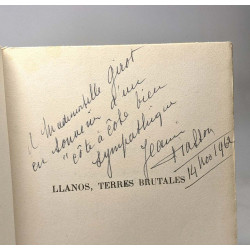 à Mademoiselle Girot
en souvenir d'un
"côte à côte bien
sympathique
Jeanne
LLANOS, TERRES BRUTALES
14 Nov 1962